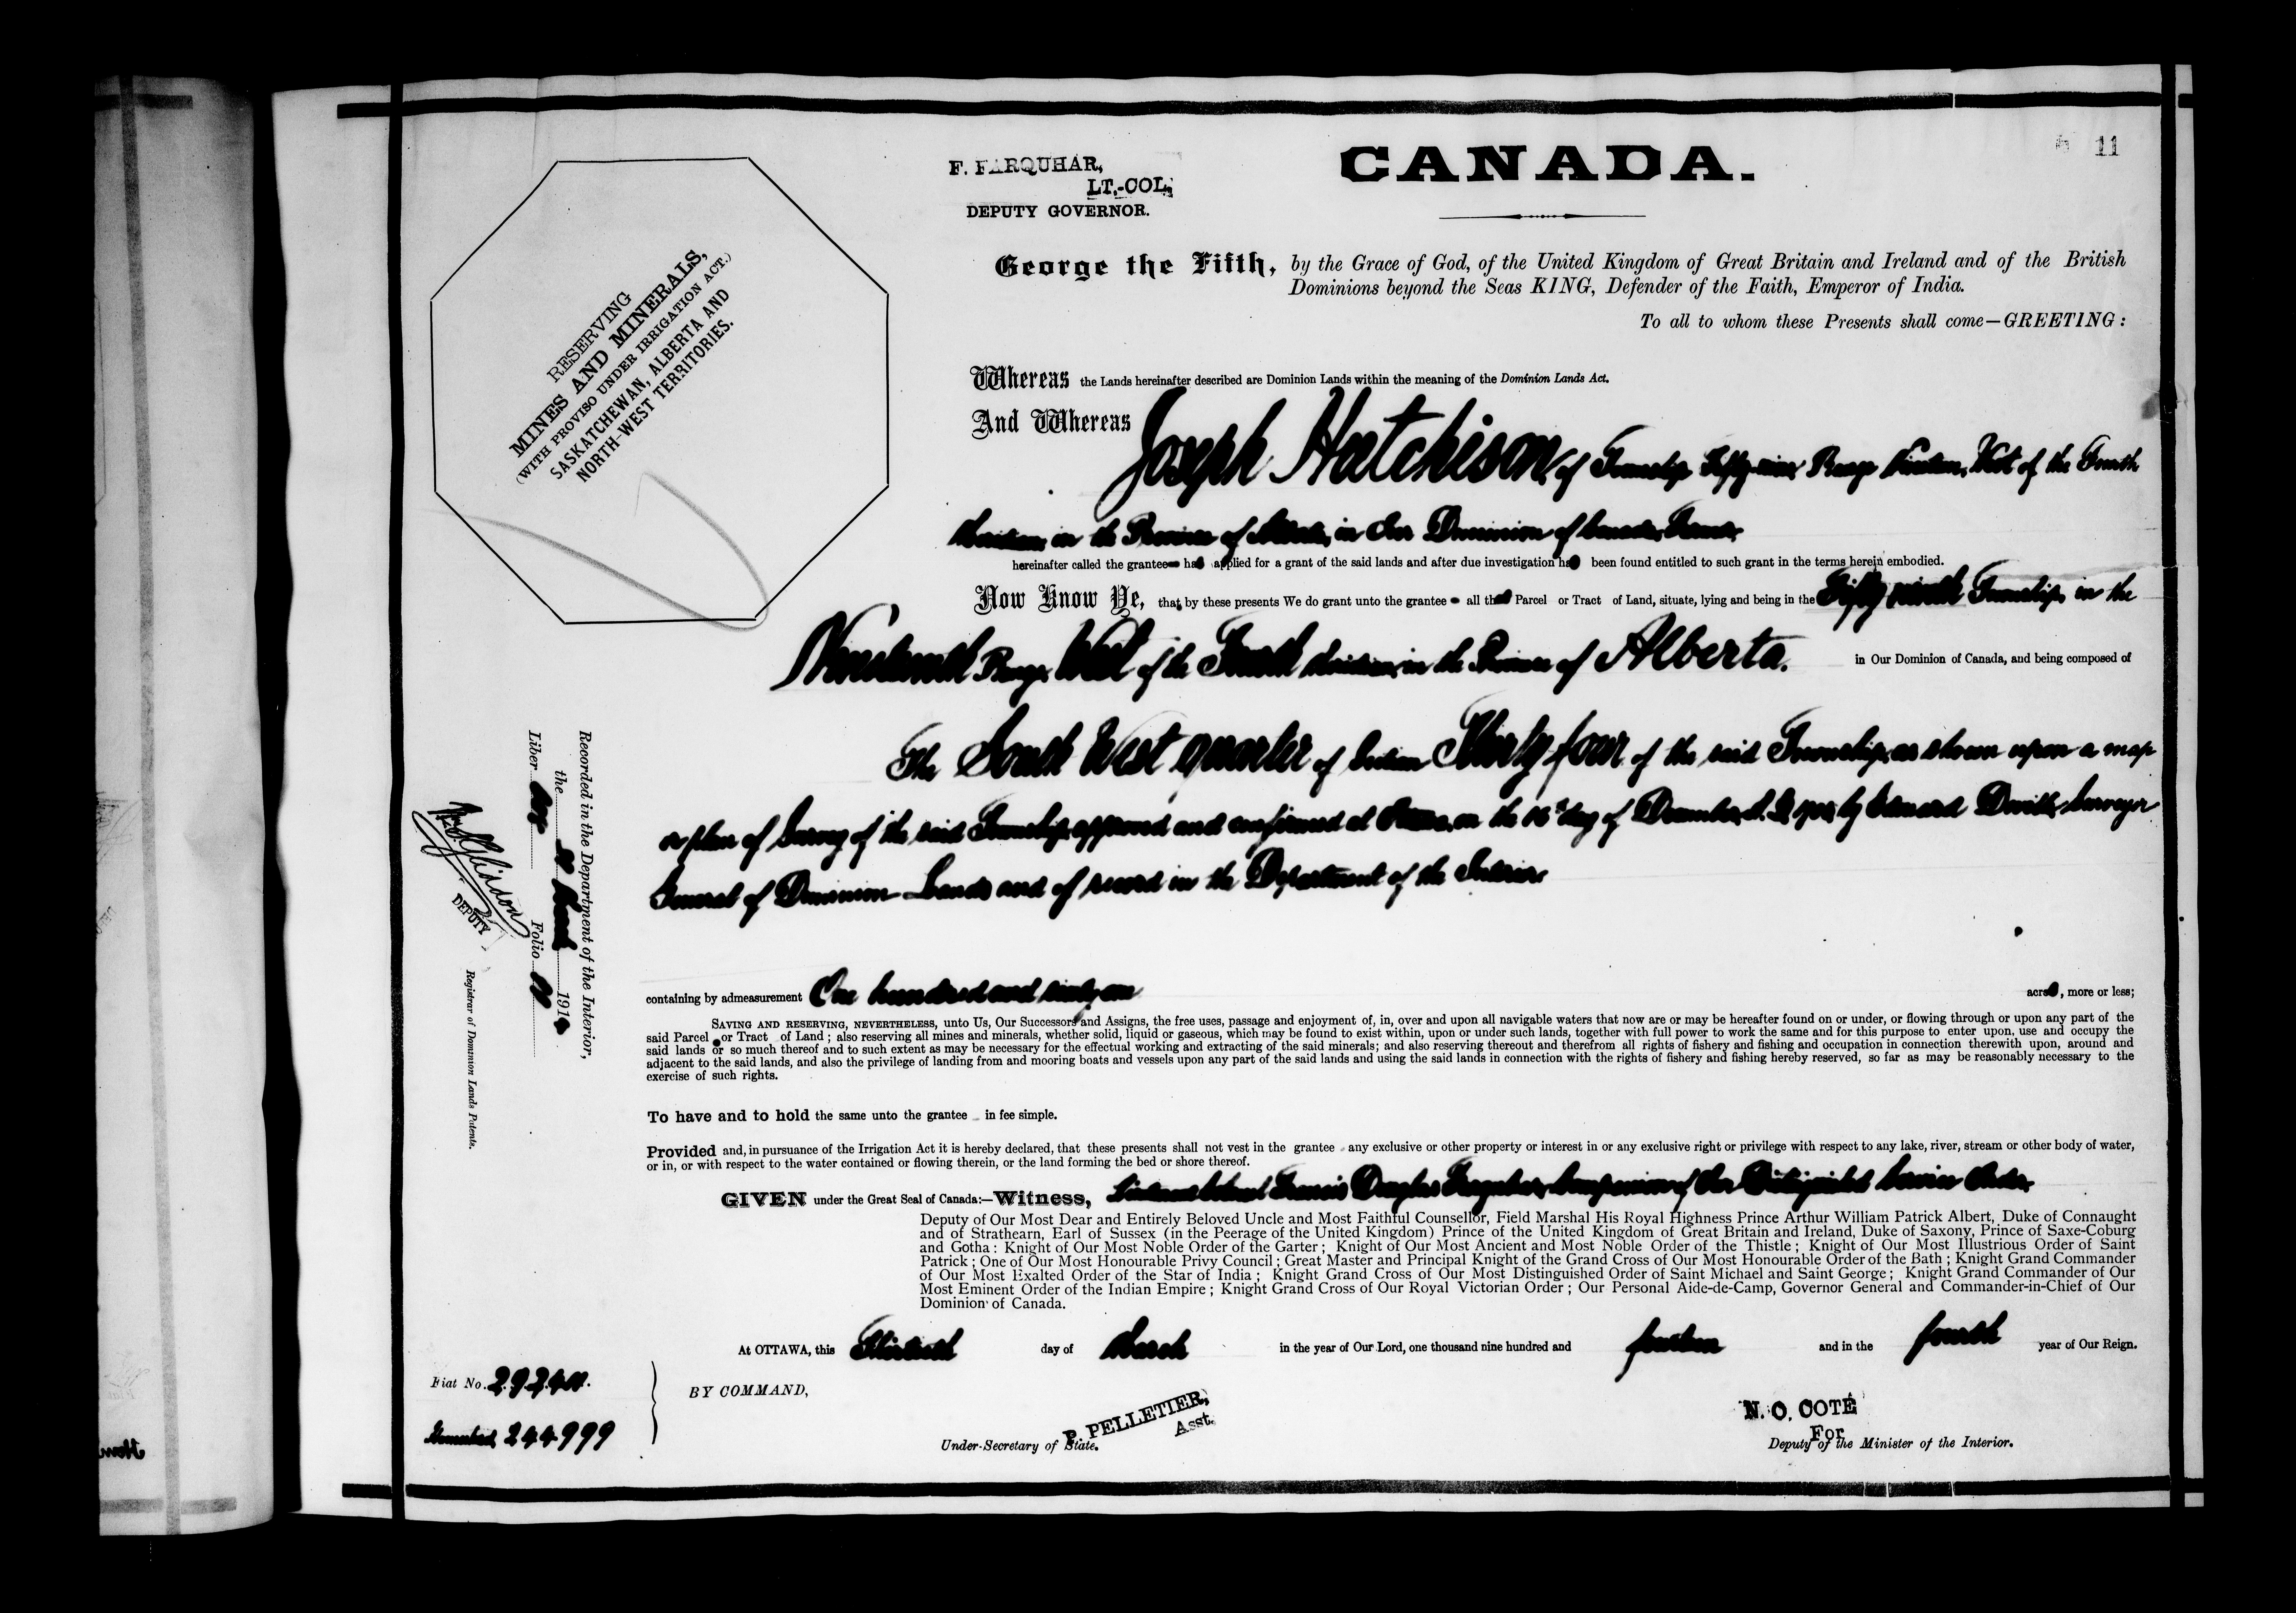 11
F. FARQUHAR,
LT.-COL.
DEPUTY GOVERNOR.
CANADA.
RESERVING
MINES AND MINERALS,
(WITH PROVISO UNDER IRRIGATION ACT.)
SASKATCHEWAN, ALBERTA AND
NORTH-WEST TERRITORIES.
George the Fifth, by the Grace of God, of the United Kingdom of Great Britain and Ireland and of the British
Dominions beyond the Seas KING, Defender of the Faith, Emperor of India.
To all to whom these Presents shall come—GREETING:
Whereas the Lands hereinafter described are Dominion Lands within the meaning of the Dominion Lands Act.
And Whereas Joseph Hutchison, of Township Fifty-nine, Range Nineteen, West of the Fourth
Meridian, in the Province of Alberta, in Our Dominion of Canada, Farmer,
hereinafter called the grantee has applied for a grant of the said lands and after due investigation has been found entitled to such grant in the terms herein embodied.
Now Know Ye, that by these presents We do grant unto the grantee all that Parcel or Tract of Land, situate, lying and being in the Fifty ninth Township, in the
Nineteenth Range, West of the Fourth Meridian, in the Province of Alberta. in Our Dominion of Canada, and being composed of
The South West quarter of Section Thirty four of the said Township, as shown upon a map
or plan of Survey of the said Township, approved and confirmed at Ottawa, on the 16th day of December, A.D. by Edouard Deville, Surveyor
General of Dominion Lands and of record in the Department of the Interior.
containing by admeasurement One hundred and sixty one acres, more or less;
SAVING AND RESERVING, NEVERTHELESS, unto Us, Our Successors and Assigns, the free uses, passage and enjoyment of, in, over and upon all navigable waters that now are or may be hereafter found on or under, or flowing through or upon any part of the
said Parcel or Tract of Land; also reserving all mines and minerals, whether solid, liquid or gaseous, which may be found to exist within, upon or under such lands, together with full power to work the same and for this purpose to enter upon, use and occupy the
said lands or so much thereof and to such extent as may be necessary for the effectual working and extracting of the said minerals; and also reserving thereout and therefrom all rights of fishery and fishing and occupation in connection therewith upon, around and
adjacent to the said lands, and also the privilege of landing from and mooring boats and vessels upon any part of the said lands and using the said lands in connection with the rights of fishery and fishing hereby reserved, so far as may be reasonably necessary to the
exercise of such rights.
To have and to hold the same unto the grantee in fee simple.
Provided and, in pursuance of the Irrigation Act it is hereby declared, that these presents shall not vest in the grantee any exclusive or other property or interest in or any exclusive right or privilege with respect to any lake, river, stream or other body of water,
or in, or with respect to the water contained or flowing therein, or the land forming the bed or shore thereof.
GIVEN under the Great Seal of Canada:—Witness, Lieutenant Colonel Francis Douglas Farquhar, Companion of the Distinguished Service Order,
Deputy of Our Most Dear and Entirely Beloved Uncle and Most Faithful Counsellor, Field Marshal His Royal Highness Prince Arthur William Patrick Albert, Duke of Connaught
and of Strathearn, Earl of Sussex (in the Peerage of the United Kingdom) Prince of the United Kingdom of Great Britain and Ireland, Duke of Saxony, Prince of Saxe-Coburg
and Gotha: Knight of Our Most Noble Order of the Garter; Knight of Our Most Ancient and Most Noble Order of the Thistle; Knight of Our Most Illustrious Order of Saint
Patrick; One of Our Most Honourable Privy Council; Great Master and Principal Knight of the Grand Cross of Our Most Honourable Order of the Bath; Knight Grand Commander
of Our Most Exalted Order of the Star of India; Knight Grand Cross of Our Most Distinguished Order of Saint Michael and Saint George; Knight Grand Commander of Our
Most Eminent Order of the Indian Empire; Knight Grand Cross of Our Royal Victorian Order; Our Personal Aide-de-Camp, Governor General and Commander-in-Chief of Our
Dominion of Canada.
At OTTAWA, this Thirtieth day of March in the year of Our Lord, one thousand nine hundred and fourteen and in the fourth year of Our Reign.
BY COMMAND,
P. PELLETIER,
Asst.
Under-Secretary of State.
N. O. COTÉ
For
Deputy of the Minister of the Interior.
Fiat No.
Homestead, 244999
Recorded in the Department of the Interior,
the 1914
Liber Folio 11
DEPUTY
Registrar of Dominion Lands Patents.